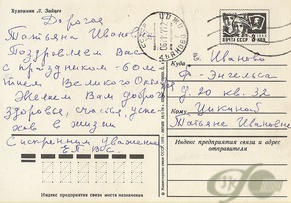 Художник Л. Зайцев
Дорогая
Татьяна Ивановна
Поздравляем Вас
с праздником 60-ле-
тием Великого Октя
Желаем Вам доброго
здоровья, счастья, успе-
хов в жизни
С искренним уважением
ПОЧТА СССР
Куда г. Иваново
Ф. Энгельса
д. 20 кв. 32
Кому
Татьяне Ивановне
Индекс предприятия связи и адрес
отправителя
Индекс предприятия связи места назначения